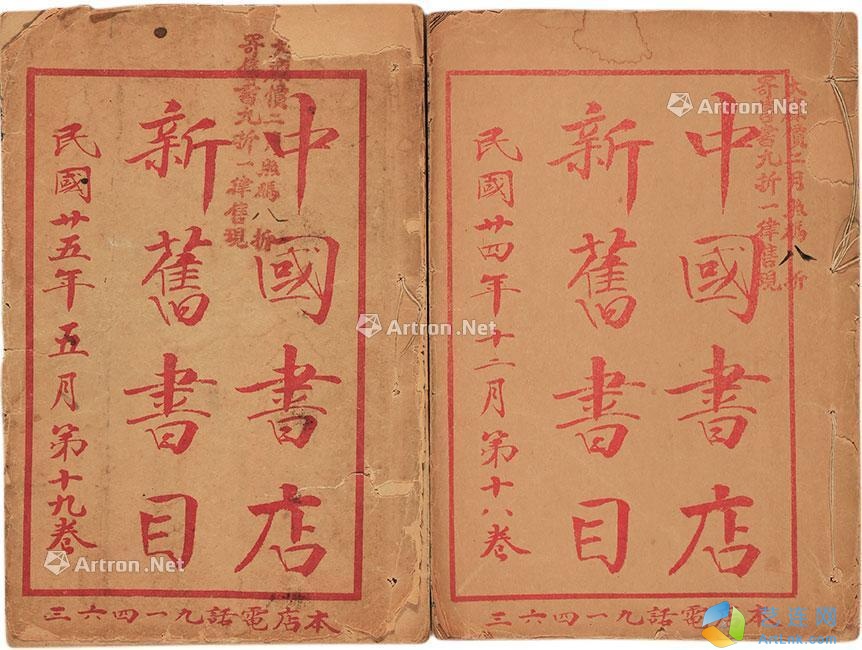 大價二月照碼八折
寄售書九折一律售現
中國書店
新舊書目
民國廿四年十二月第十八卷
本店電話九一四六三
大價二月照碼八折
寄售書九折一律售現
中國書店
新舊書目
民國廿五年五月第十九卷
本店電話九一四六三
Artron.Net
Artron.Net
Artron.Net
Artron.Net
Artron.Net
艺连网
ArtLink.Com